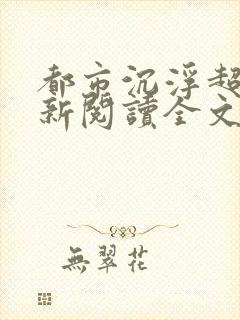 都市沉浮超
新閱讀全文
無翠花